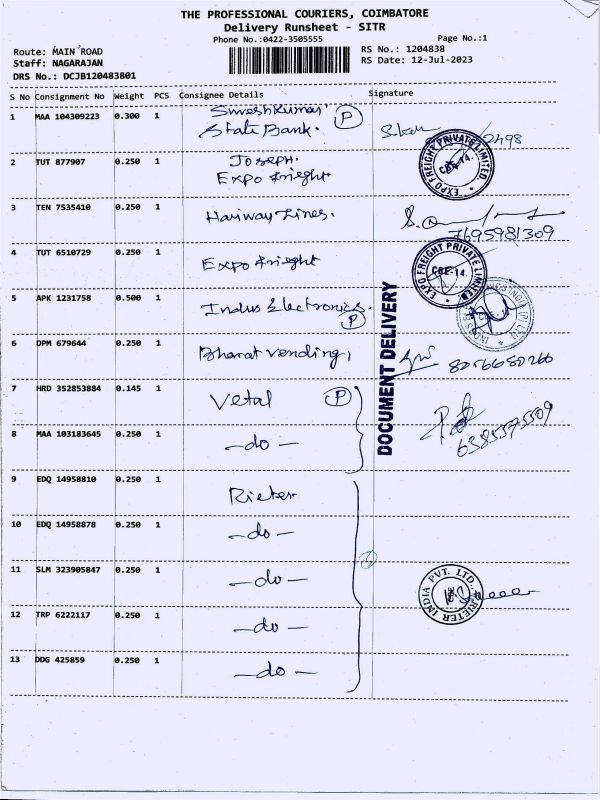 THE PROFESSIONAL COURIERS, COIMBATORE
Delivery Runsheet - SITR
Phone No.:0422-3505555
Page No.:1
Route: MAIN ROAD
RS No.: 1204838
Staff: NAGARAJAN
RS Date: 12-Jul-2023
DRS No.: DCJB120483801
S No Consignment No Weight PCS Consignee Details Signature
1 MAA 104309223 0.300 1 Sureshkumar P
State Bank.
2 TUT 877907 0.250 1 Joseph.
Expo frieght
EXPO FREIGHT PRIVATE LIMITED
CBE-14.
3 TEN 7535410 0.250 1 Hariway Lines.
7695981309
4 TUT 6510729 0.250 1 Expo frieght
EXPO FREIGHT PRIVATE LIMITED
CBE-14.
5 APK 1231758 0.500 1 Indus Electronics.
P
DOCUMENT DELIVERY
6 DPM 679644 0.250 1 Bharat vending,
8056680266
7 HRD 352853884 0.145 1 Vetal P
6385375309
8 MAA 103183645 0.250 1 -do-
9 EDQ 14958810 0.250 1 Rieter
10 EDQ 14958878 0.250 1 -do-
11 SLM 323905847 0.250 1 -do-
RIETER INDIA PVT. LTD.
12 TRP 6222117 0.250 1 -do-
13 DDG 425859 0.250 1 -do-